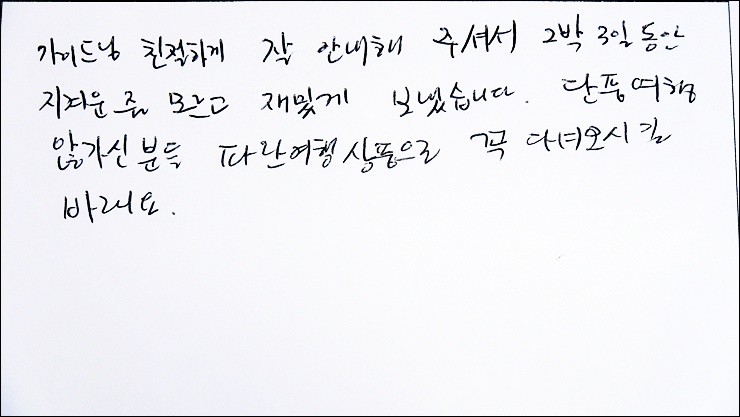 가이드님 친절하게 잘 안내해 주셔서 2박 3일 동안
지겨운줄 모르고 재밌게 보냈습니다. 단풍여행
않가신분들 파란여행상품으로 꼭 다녀오시길
바래요.